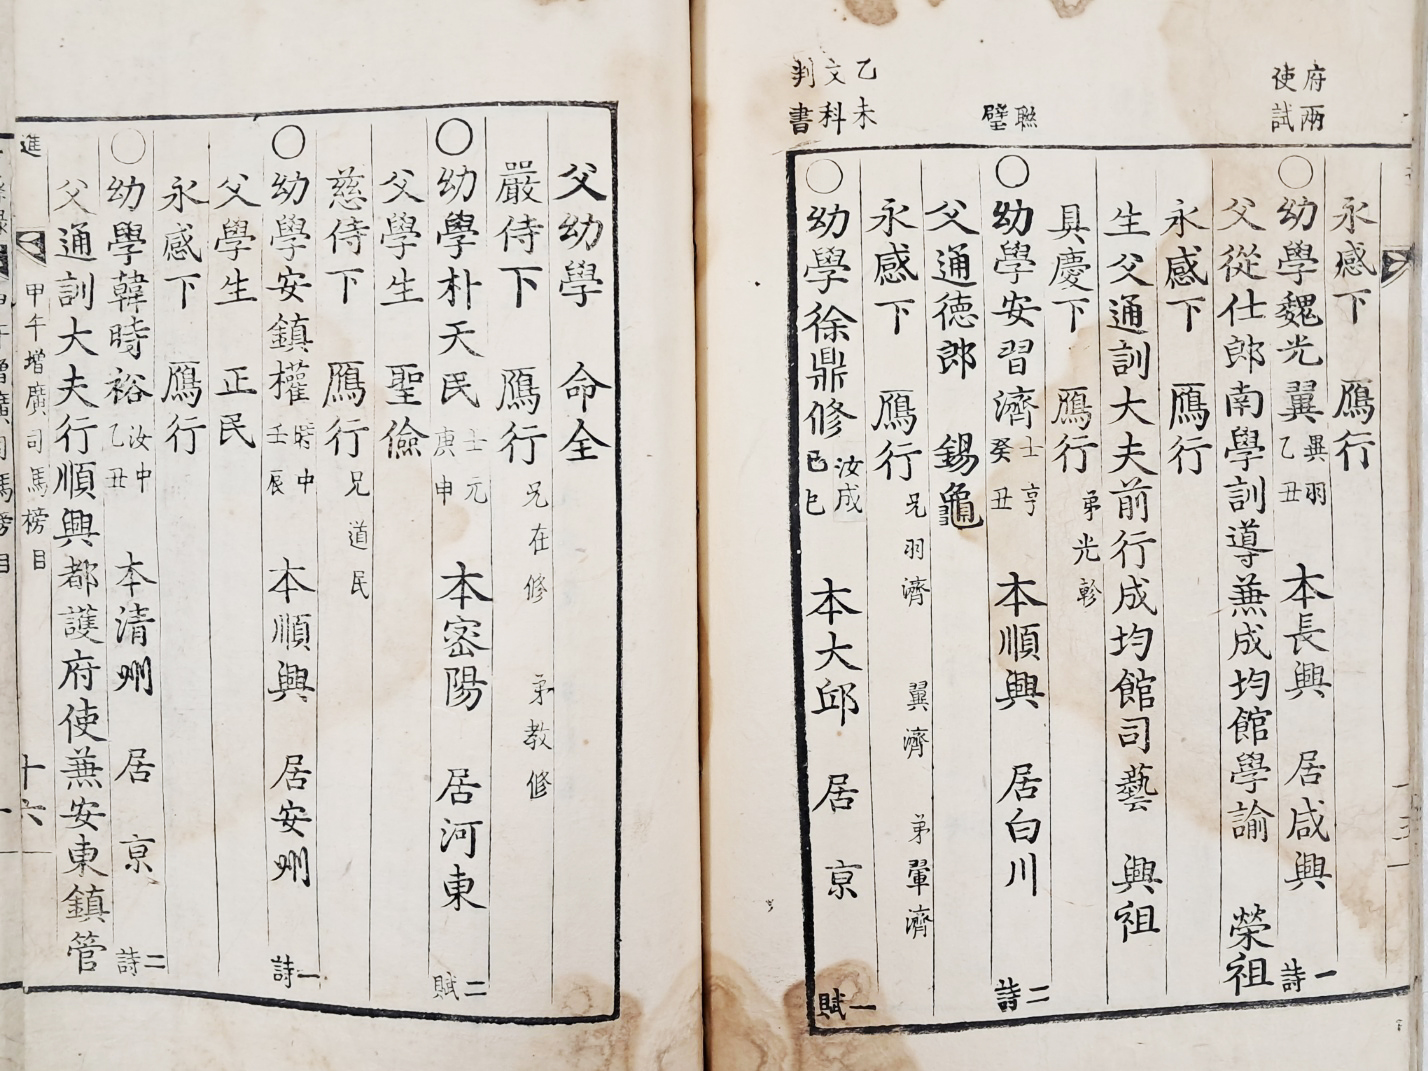 府兩
使試
聯
璧
乙未
文科
判書
永感下 鴈行
○幼學魏光翼 羽
乙丑 本長興 居咸興 一
詩
父從仕郎南學訓導兼成均館學諭 榮祖
永感下 鴈行
生父通訓大夫前行成均館司藝 興祖
具慶下 鴈行 弟光軫
○幼學安習濟 士亨
癸丑 本順興 居白川 二
詩
父通德郎 錫龜
永感下 鴈行 兄羽濟 翼濟 弟翬濟
○幼學徐鼎修 汝成
己巳 本大邱 居京 一
賦
父幼學 命全
嚴侍下 鴈行 兄在修 弟教修
○幼學朴天民 士元
庚申 本密陽 居河東 二
賦
父學生 聖儉
慈侍下 鴈行 兄道民
○幼學安鎮權 時中
壬辰 本順興 居安州 一
詩
父學生 正民
永感下 鴈行
○幼學韓時裕 汝中
乙丑 本清州 居京 二
詩
父通訓大夫行順興都護府使兼安東鎮管
進
甲午增廣司馬榜目
十六